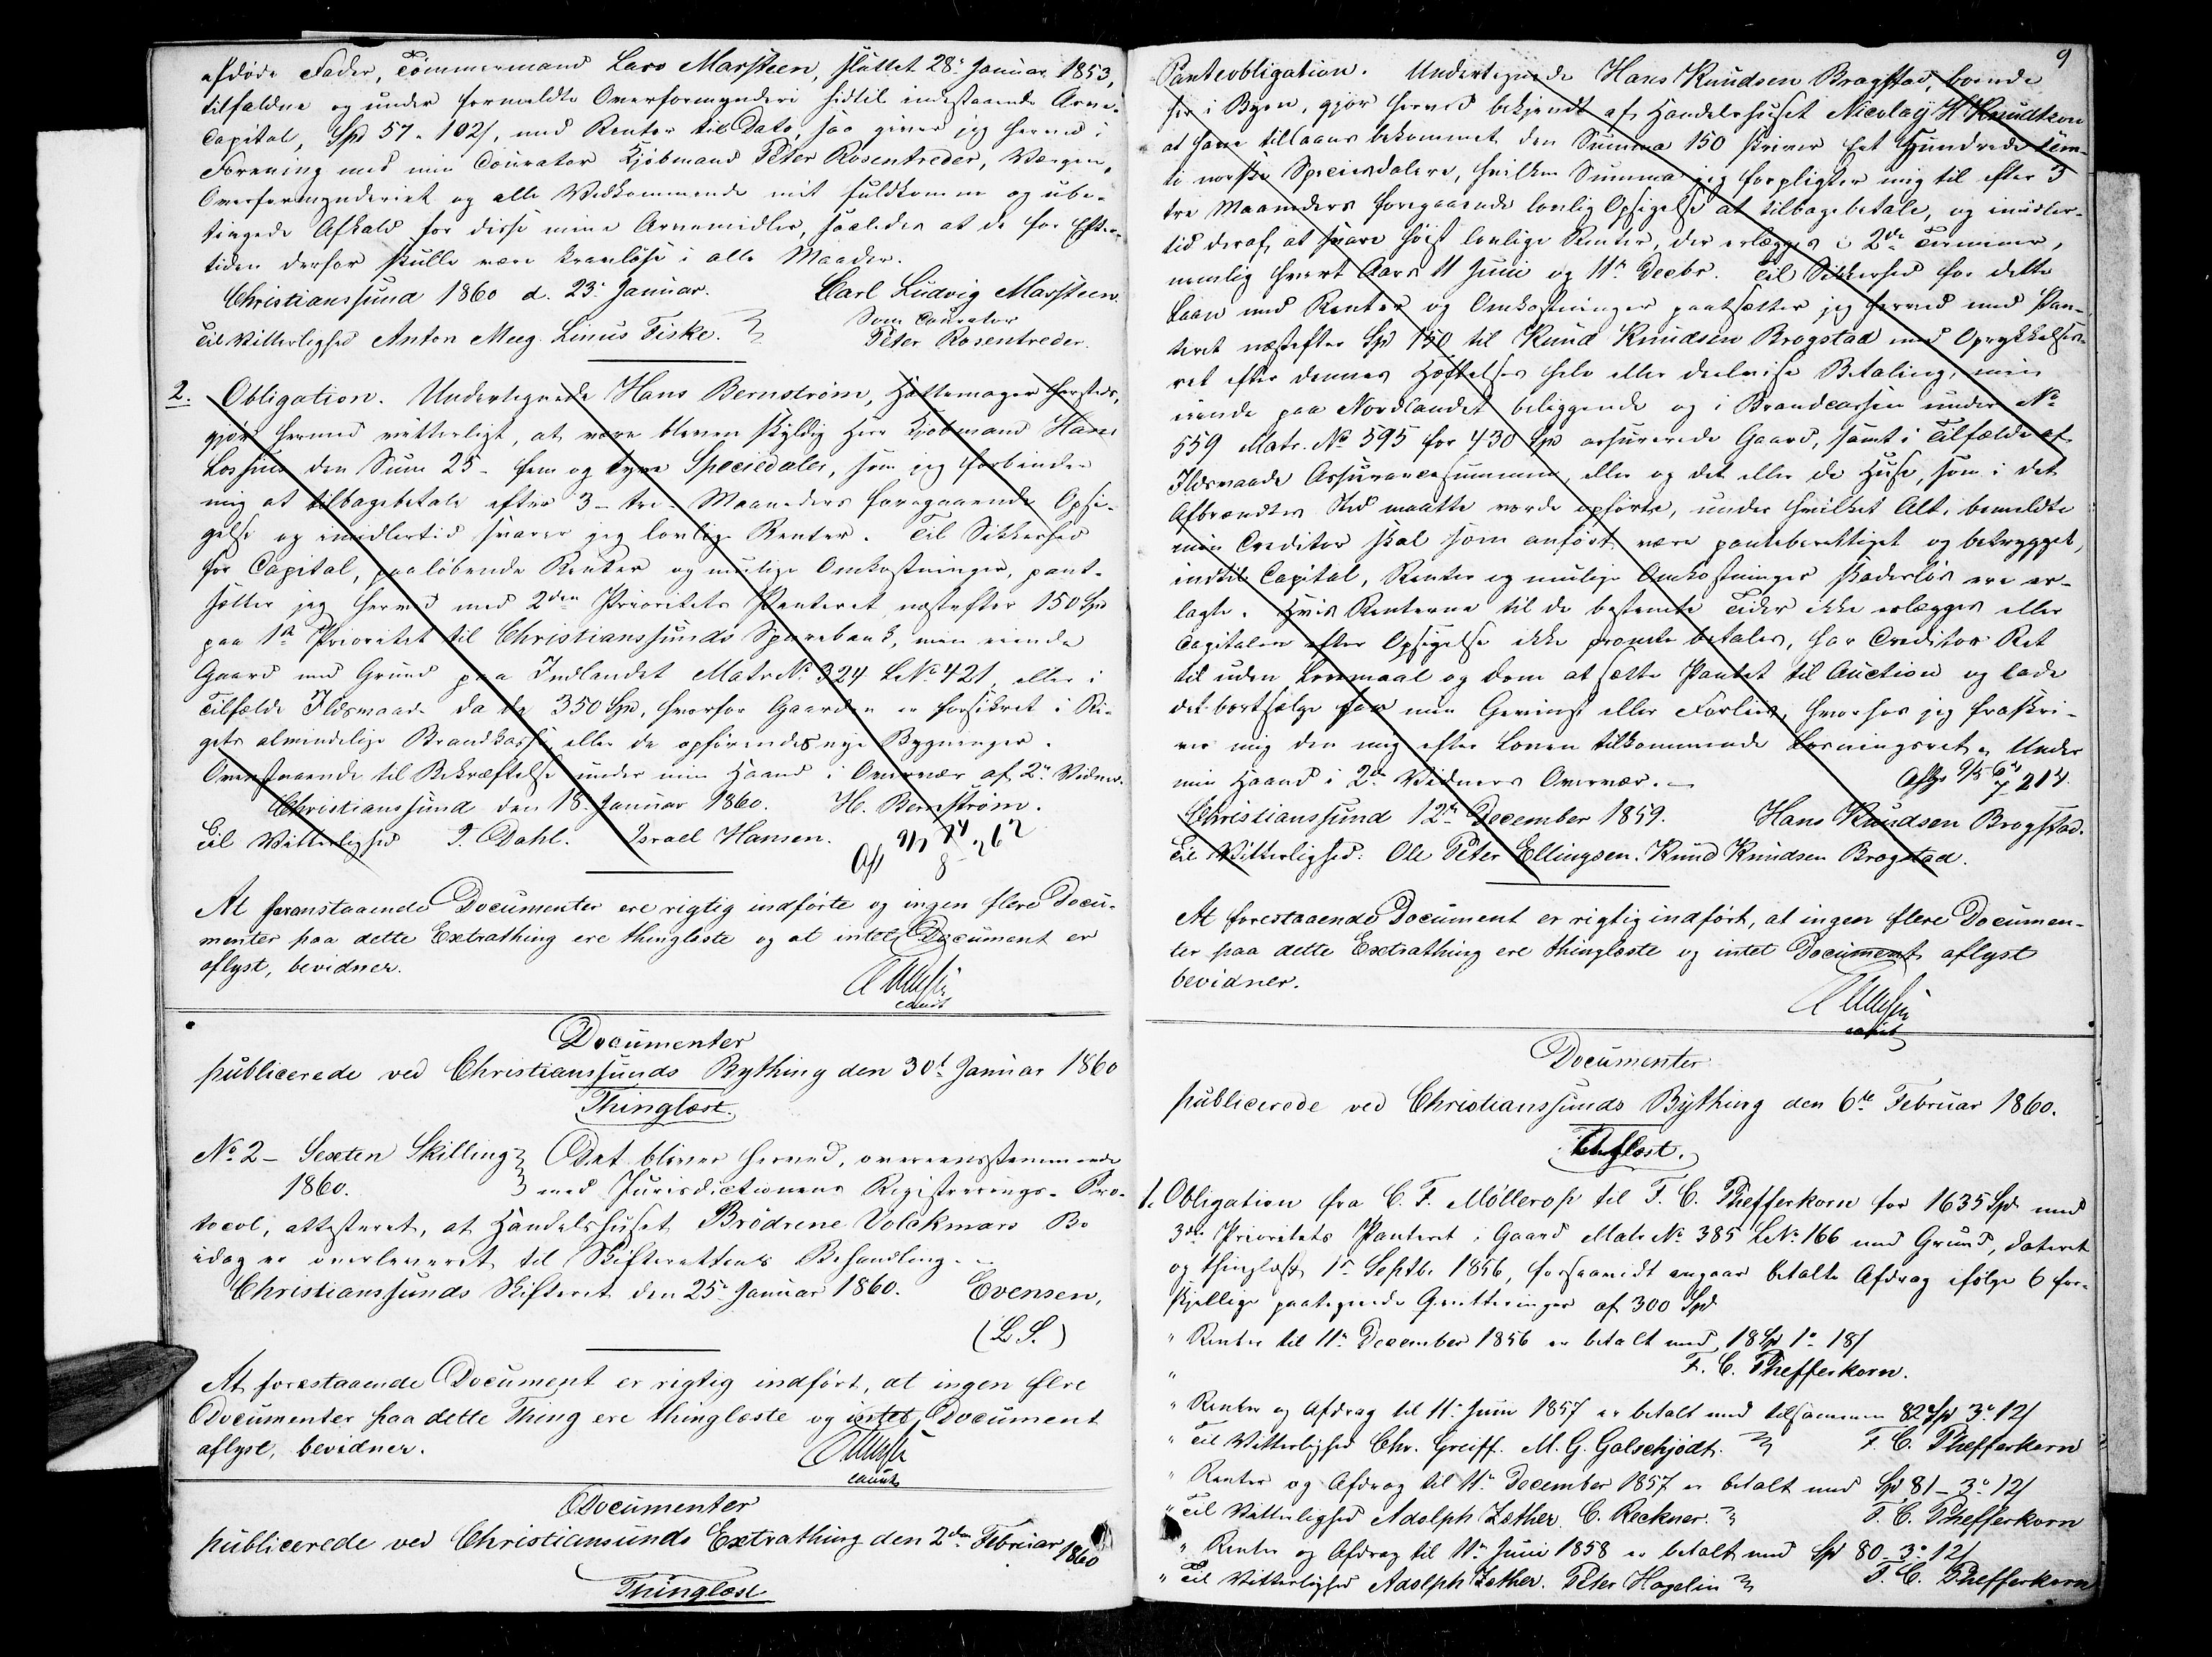 afdøde Fader, Tømmermand Lars Marsteen, sluttet 28de Januar 1853,
tilfaldne og under formeldte Overformynderi hidtil indestaaende Arve-
Capital, Spd 57 - 102 s, med Renter til Dato, saa giver jeg herved i
Forening med min Courator Kjøbmand Peter Rosentreder, Værgen,
Overformynderiet og alle Vedkommende mit fuldkomne og ube-
tingede Afkald for disse mine Arvemidler, saaledes at de for Efter-
tiden derfor skulle være kravløse i alle Maader.
Christianssund 1860 d. 23de Januar. Carl Ludvig Marsteen.
Som Courator
Til Vitterlighed Anton Meeg. Linus Fiske. Peter Rosentreder.
2. Obligation. Undertegnede Hans Bernstrøm, Hattemager hersteds,
gjør hermed vitterligt, at være bleven skyldig Herr Kjøbmand Hans
Lossius den Sum 25 - fem og tyve Speciedaler, som jeg forbinder
mig at tilbagebetale efter 3 - tre - Maaneders foregaaende Opsi-
gelse og imidlertid svarer jeg lovlige Renter. Til Sikkerhed
for Capital, paaløbende Renter og mulige Omkostninger, pant-
sætter jeg herved med 2den Prioritets Panteret næstefter 150 Spd
paa 1ste Prioritet til Christianssunds Sparebank, min eiende
Gaard med Grund paa Indlandet Matr. No 324 L No 421, eller i
Tilfælde Ildsvaade da de 350 Spd, hvorfor Gaarden er forsikret i Ri-
gets almindelige Brandkasse eller de opførendes nye Bygninger.
Ovenstaaende til Bekræftelse under min Haand i Overvær af 2de Vidner.
Christianssund den 18 Januar 1860. H. Bernstrøm.
Til Vitterlighed T. Dahl. Israel Hansen.
At foranstaaende Documenter ere rigtig indførte og ingen flere Docu-
menter paa dette Extrathing ere thinglæste og at intet Document er
aflyst, bevidner.
const
Documenter
publicerede ved Christianssunds Bything den 30te Januar 1860
Thinglæst.
No 2 - Sexten Skilling Det bliver herved, overeensstemmende
1860. med Jurisdictionens Registrerings-Pro-
tocol, attesteret, at Handelshuset Brødrene Volckmars Bo
idag er overleveret til Skifterettens Behandling. -
Christianssunds Skifteret den 25de Januar 1860. Evensen,
(L. S.)
At forestaaende Document er rigtig indført, at ingen flere
Documenter paa dette Thing ere thinglæste og intet Document
aflyst, bevidner.
const
Documenter
publicerede ved Christiansunds Extrathing den 2den Februar 1860
Thinglæst
9
Panteobligation. Undertegnede Hans Knudsen Brogstad, boende
her i Byen, gjør herved bekjendt af Handelshuset Nicolaÿ H Knudtzon
at have tillaans bekommet den Summa 150 skriver Et Hundrede fem-
ti norske Speciesdalere, hvilken Summa jeg forpligter mig til efter 3
tre Maaneders foregaaende lovlig Opsigelse at tilbagebetale, og imidler-
tid deraf at svare høist lovlige Renter, der erlægges i 2de Terminer,
nemlig hvert Aars 11 Juni og 11te Decbr. Til Sikkerhed for dette
Laan med Renter og Omkostninger pantsætter jeg herved med Pan-
teret næstefter Spd 150 til Knud Knudsen Brogstad med Oprykkelses-
ret efter dennes Hæftelses hele eller deelvise Betaling, min
eiende paa Nordlandet beliggende og i Brandcassen under No
559 Matr. No 595 for 430 Spd assurerede Gaard, samt i Tilfælde af
Ildsvaade Assurancesummen, eller og det eller de Huse, som i det
Afbrændtes Sted maatte vorde opførte, under hvilket Alt, bemeldte
min Creditor skal som anført være panteberettiget og betrygget,
indtil Capital, Renter og mulige Omkostninger skadesløs ere er-
lagte. Hvis Renterne til de bestemte Tider ikke erlægges eller
Capitalen efter Opsigelse ikke promte betales, har Creditor Ret
til uden Lovmaal og Dom at sætte Pantet til Auction og lade
det bortsælge for min Gevinst eller Forliis, hvorhos jeg fraskri-
ver mig den mig efter Loven tilkommende Løsningsret. Under
min Haand i 2de Vidners Overvær. -
Christianssund 12te December 1859. Hans Knudsen Brogstad.
Til Vitterlighed: Ole Peter Ellingsen. Knud Knudsen Brogstad.
At forestaaende Document er rigtig indført, at ingen flere Documen-
ter paa dette Extrathing ere thinglæste og intet Document aflyst
bevidner.
const
Documenter
publicerede ved Christianssunds Bything den 6te Februar 1860.
Aflæst.
1. Obligation fra C. F. Møllerop til F. C. Pfefferkorn for 1635 Spd med
3die Prioritets Panteret i Gaard Matr No 385 L No 166 med Grund, dateret
og thinglæst 1ste Septbr. 1856, forsaavidt angaar betalte Afdrag ifølge 6 for-
skjellige paategnede Qvitteringer af 300 Spd
" Renter til 11te December 1856 er betalt med 18 Spd 1 " 18 s
" F. C. Pfefferkorn.
" Renter og Afdrag til 11te Juni 1857 er betalt med tilsammen 82 Spd 3 " 12 s
" Til Vitterlighed Chr. Greiff. M. G. Galschjødt. F. C. Pfefferkorn
" Renter og Afdrag til 11te December 1857 er betalt med Spd 81 - 3 " 12 s
" Til Vitterlighed Adolph Zether. C. Reckner. F. C. Pfefferkorn
" Renter og Afdrag til 11te Juni 1858 er betalt med Spd 80 - 3 " 12 s
" Til Vitterlighed Adolph Zether. Peter Hagelin F. C. Pfefferkorn